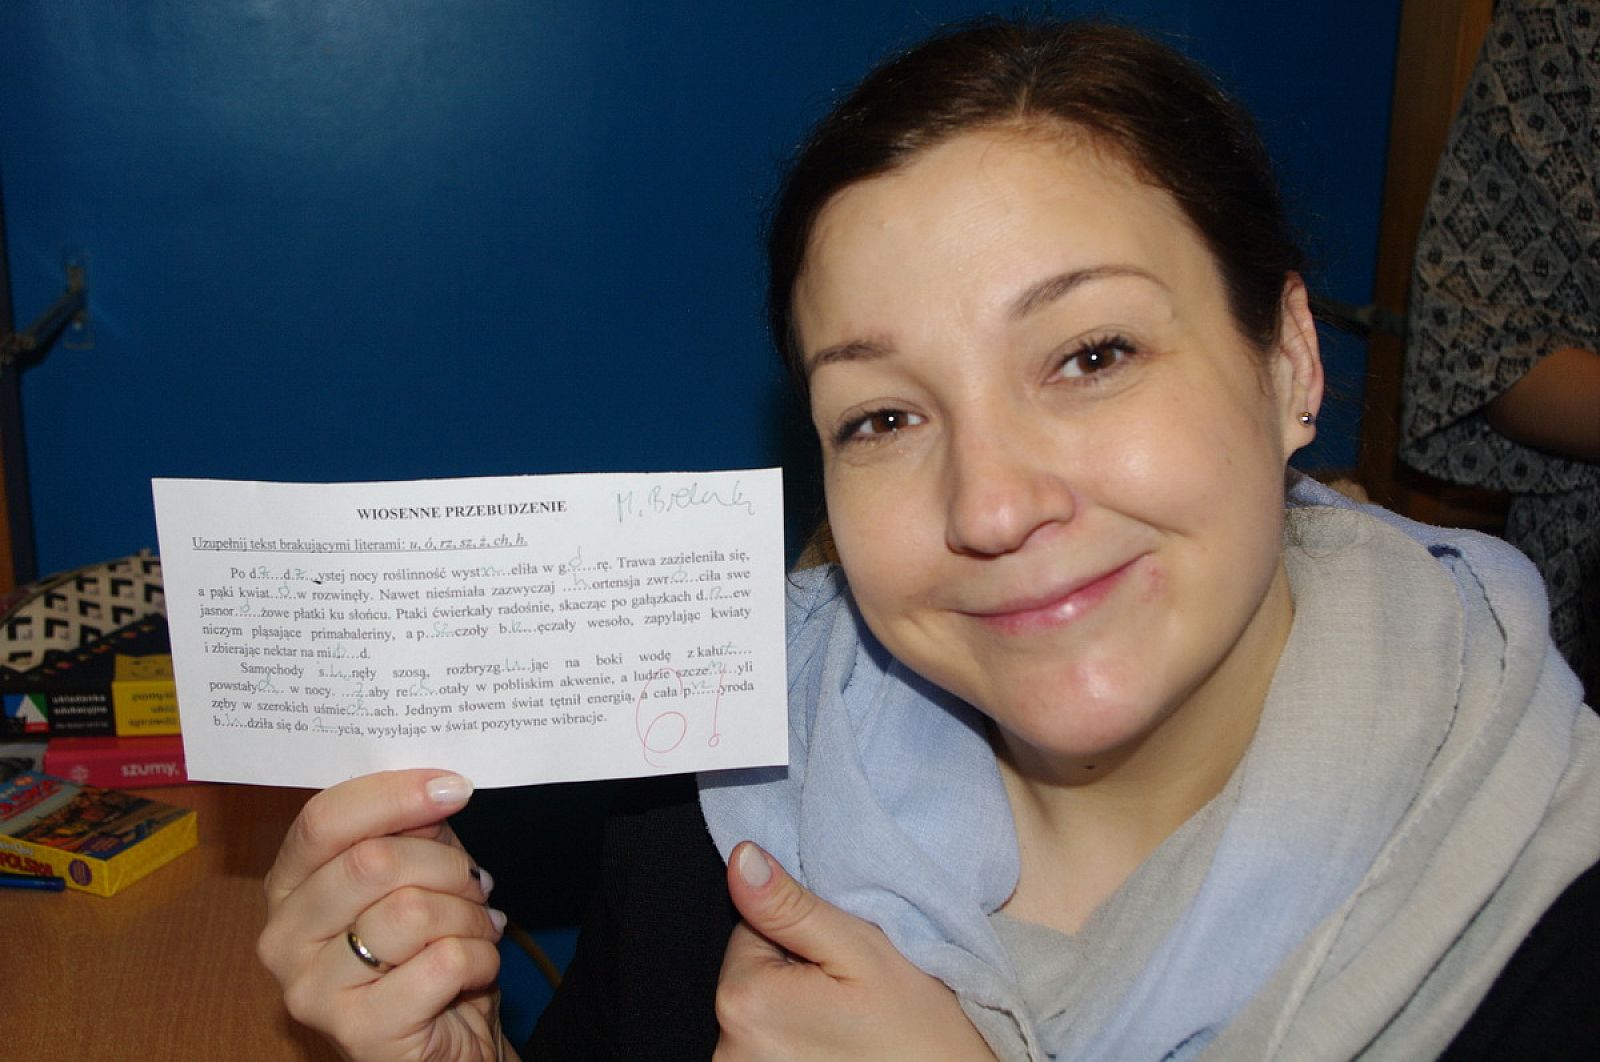 WIOSENNE PRZEBUDZENIE
Uzupełnij tekst brakującymi literami: u, ó, rz, sz, ż, ch, h.
Po d.ż...d.ż...ystej nocy roślinność wyst.rz...eliła w g.ó...rę. Trawa zazieleniła się,
a pąki kwiat..ó..w rozwinęły. Nawet nieśmiała zazwyczaj ...h...ortensja zwr..ó...ciła swe
jasnor..ó...żowe płatki ku słońcu. Ptaki ćwierkały radośnie, skacząc po gałązkach d..rz...ew
niczym pląsające primabaleriny, a p...sz...czoły b..rz...ęczały wesoło, zapylając kwiaty
i zbierając nektar na mi..ó...d.
Samochody s..u...nęły szosą, rozbryzg..u...jąc na boki wodę z kałuż....
powstały..ch... w nocy. ...ż...aby re..ch...otały w pobliskim akwenie, a ludzie szcze..rz...yli
zęby w szerokich uśmie..ch...ach. Jednym słowem świat tętnił energią, a cała p..rz...yroda
b..u...dziła się do ..ż...ycia, wysyłając w świat pozytywne wibracje.
6!
układanka
edukacyjna
pomyśl
ułóż
sprawdź
szumy,
POLSKA